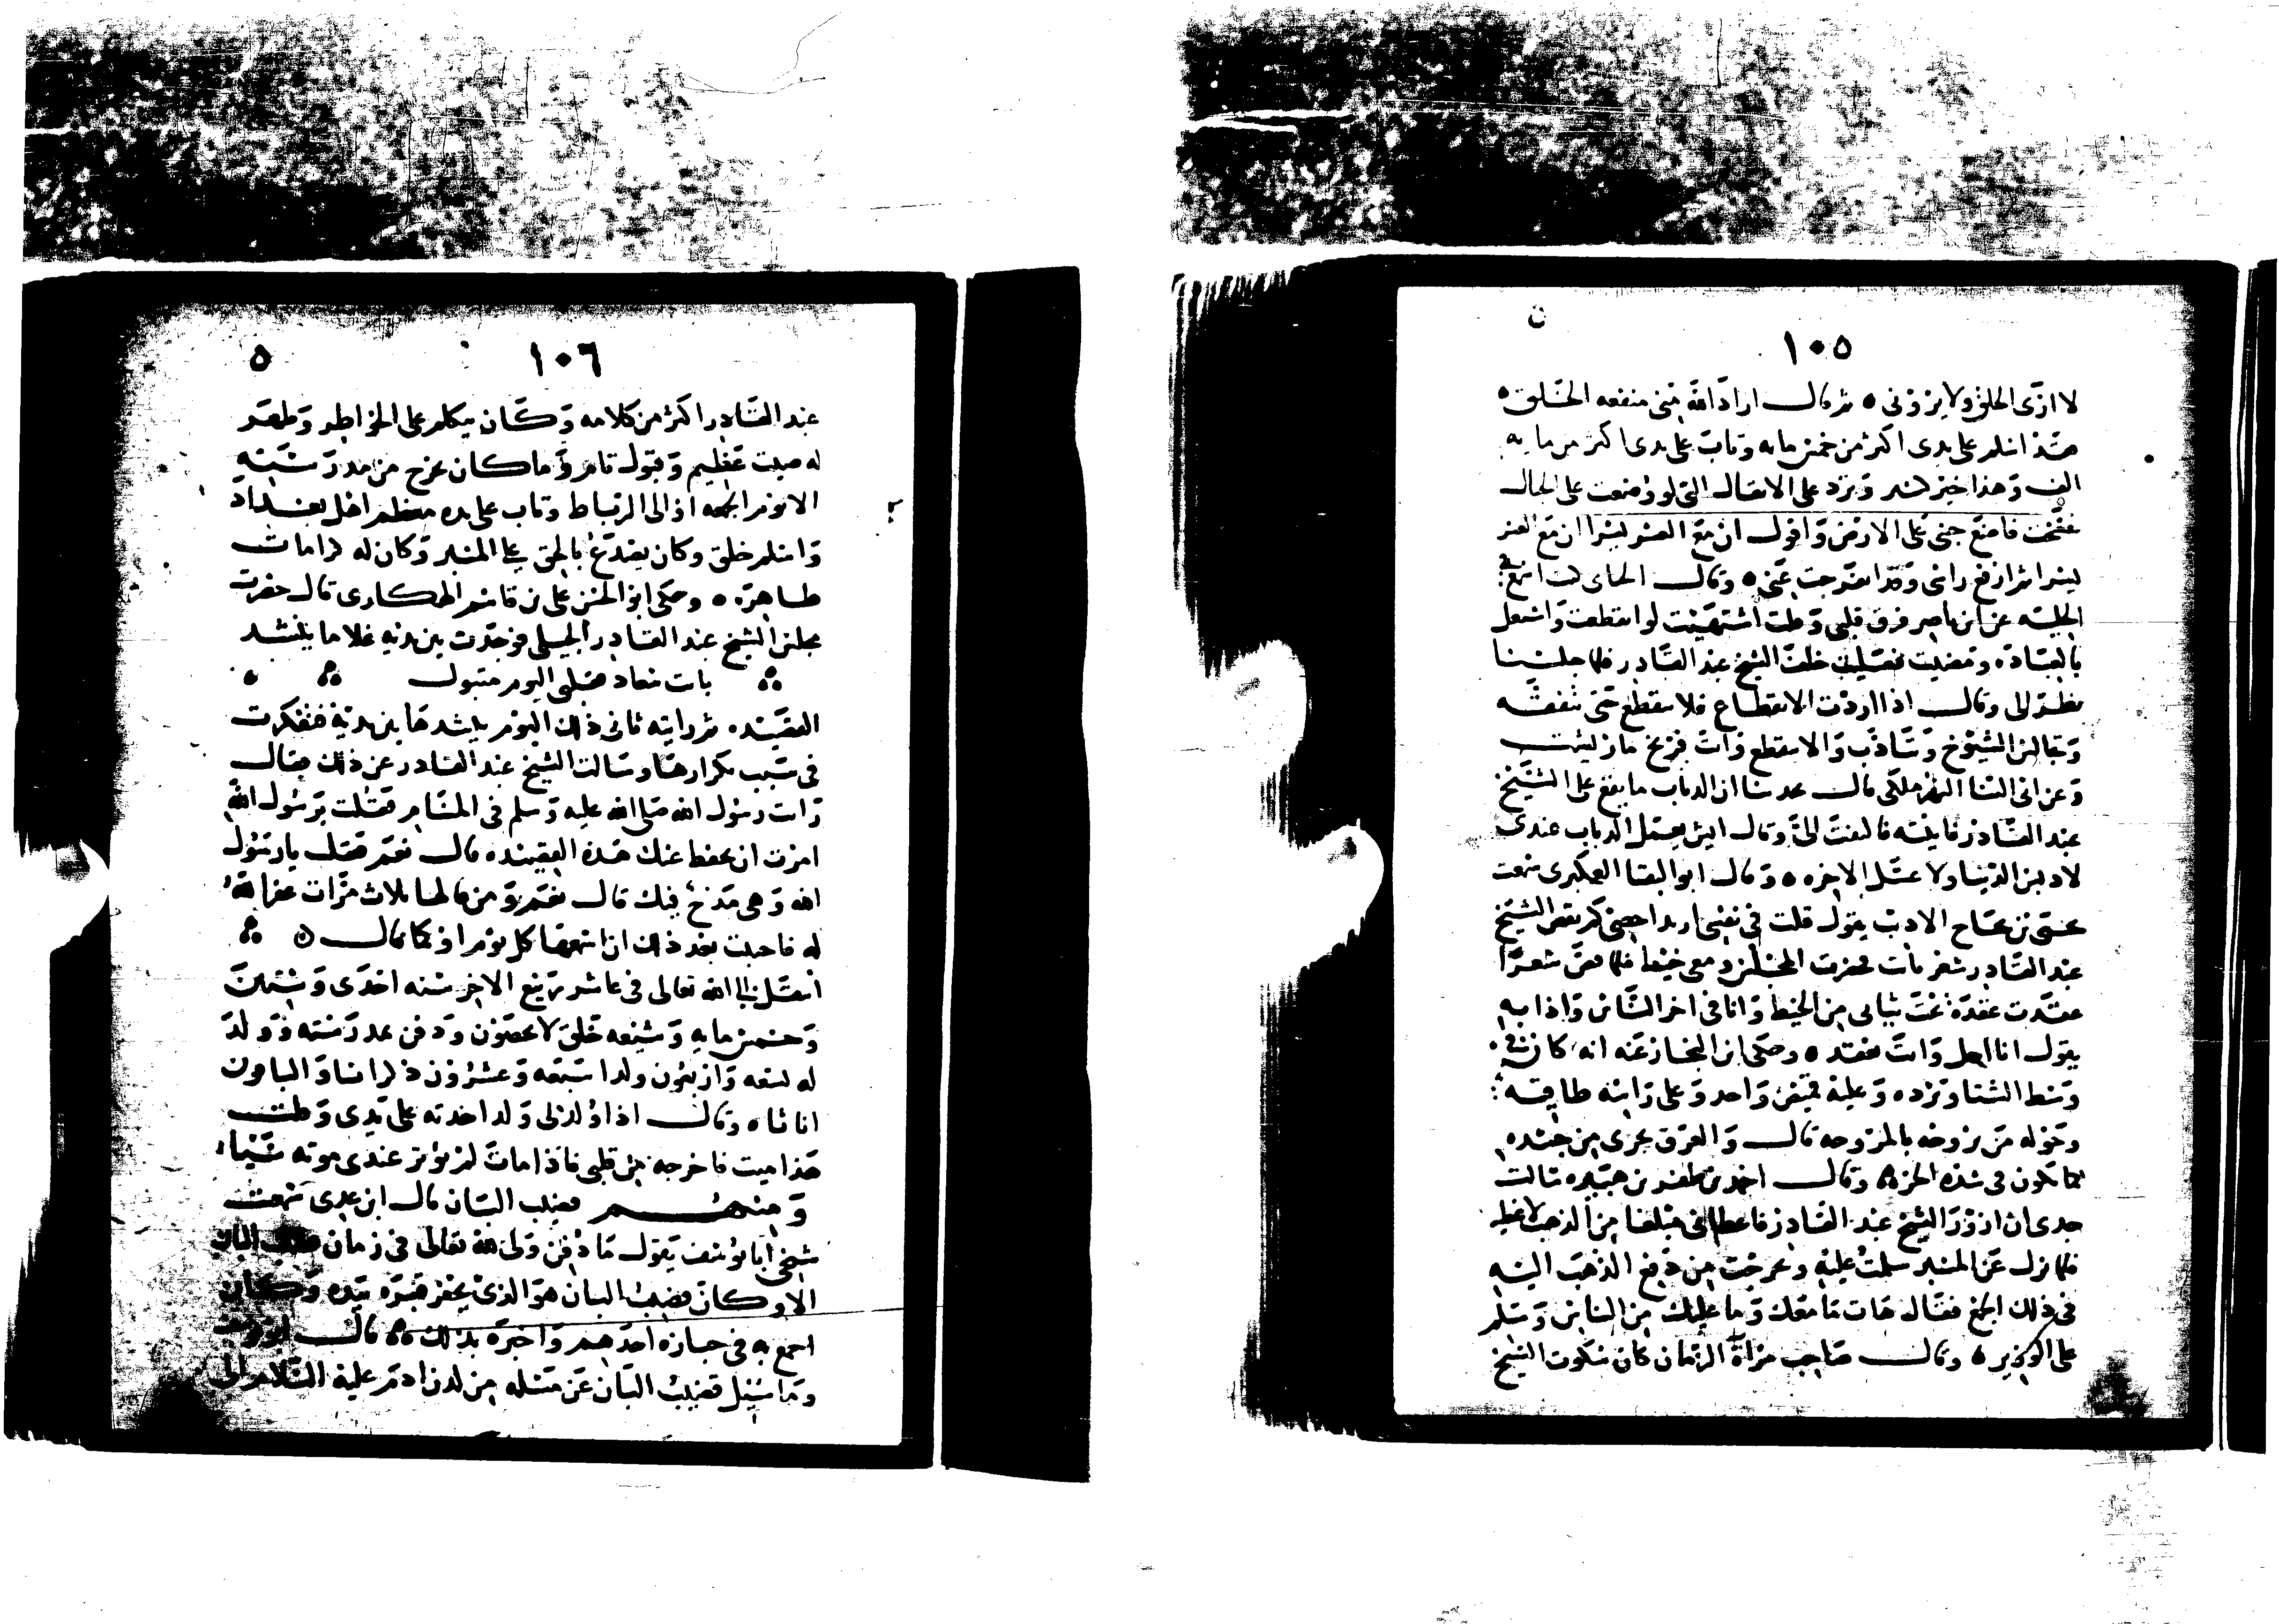 ١٠٥
لا ارى الخلق ولا يروني ٥ ثم قال اراد الله مني منفعه الخلق ٥
قد اسلم على يدي اكثر من خمس مايه وتاب على يدي اكثر من مايه
الف وهذا خير كثير وترد علي الاثقال التي لو وضعت على الجبال
تفسخت فاضع جنبي على الارض واقول ان مع العسر يسرا ان مع العسر
يسرا ثم ارفع راسي وقد انفرجت عني ٥ وقال الجباي كنت اسمع في
الحليه عن ابن ناصر فرق قلبي وقلت اشتهيت لو انقطعت واشتغل
بالعباده ومضيت فصليت خلف الشيخ عبد القادر فلما جلسنا
نظر الي وقال اذا اردت الانقطاع فلا تنقطع حتى تتفقه
وتجالس الشيوخ وتتادب والا تنقطع وانت فريخ ما ريشت
وعن ابي الثنا النهرملكي قال حدثنا ان الذباب ما يقع على الشيخ
عبد القادر فاتيته فالتفت الي وقال ايش يعمل الذباب عندي
لا دبس الدنيا ولا عسل الاخره ٥ وقال ابو البقا العكبري سمعت
يحيى بن نجاح الاديب يقول قلت في نفسي اريد احصي كم يقص الشيخ
عبد القادر شعر تايب فحضرت المجلس ومعي خيط فلما قص شعرا
عقدت عقدة تحت ثيابي من الخيط وانا في اخر الناس واذا به
يقول انا احل وانت تعقد ٥ وحكى ابن النجار عنه انه كان في
وسط الشتا وبرده وعليه قميص واحد وعلى راسه طاقيه
وحوله من يروحه بالمروحه قال والعرق يجري من جسده
كما يكون في شده الحر ٥ وقال احمد بن ظفر بن هبيره سالت
جدي ان ازور الشيخ عبد القادر فاعطاني مبلغا من الذهب لاعطيه
فلما نزل عن المنبر سلمت عليه وتحرجت من دفع الذهب اليه
في ذلك الجمع فقال هات ما معك وما عليك من الناس وسلم
على الوزير ٥ وقال صاحب مراة الزمان كان سكوت الشيخ
١٠٦
عبد القادر اكثر من كلامه وكان يتكلم على الخواطر وظهر
له صيت عظيم وقبول تام وما كان يخرج من مدرسته
الا يوم الجمعه او الى الرباط وتاب على يده معظم اهل بغداد
واسلم خلق وكان يصدع بالحق على المنبر وكان له كرامات
ظاهره ٥ وحكى ابو الحسن علي بن قاسم الهكاري قال حضرت
مجلس الشيخ عبد القادر الجيلي فوجدت بين يديه غلاما ينشد
بانت سعاد فقلبي اليوم متبول
القصيده ثم رايته ثاني ذلك اليوم ينشدها بين يديه ففكرت
في سبب تكرارها وسالت الشيخ عبد القادر عن ذلك فقال
رايت رسول الله صلى الله عليه وسلم في المنام فقلت يرسول الله
امرت ان يحفظ عنك هذه القصيده قال نعم فقلت يا رسول
الله وهي مدح فيك قال نعم ومن قالها ثلاث مرات غفر الله
له فاحببت بعد ذلك ان اسمعها كل يوم او كما قال ٥
انتقل الى الله تعالى في عاشر ربيع الاخر سنه احدى وستين
وخمس مايه وشيعه خلق لا يحصون ودفن بمدرسته وولد
له تسعه واربعون ولدا سبعه وعشرون ذكرانا والباقون
اناثا ٥ وقال اذا ولد لي ولد اخذته على يدي وقلت
هذا ميت فاخرجه من قلبي فاذا مات لم يوثر عندي موته شيا
ومنهم قضيب البان قال ابن عدي سمعت
شيخي ابا يوسف يقول ما دفن ولي لله تعالى في زمان قضيب البان
الا وكان قضيب البان هو الذي يحفر قبره بيده وكان
اجمع به في جنازه احدهم واخبره بذلك ٥ قال ابو يوسف
وما سئل قضيب البان عن مسئله من لدن ادم عليه السلام الى